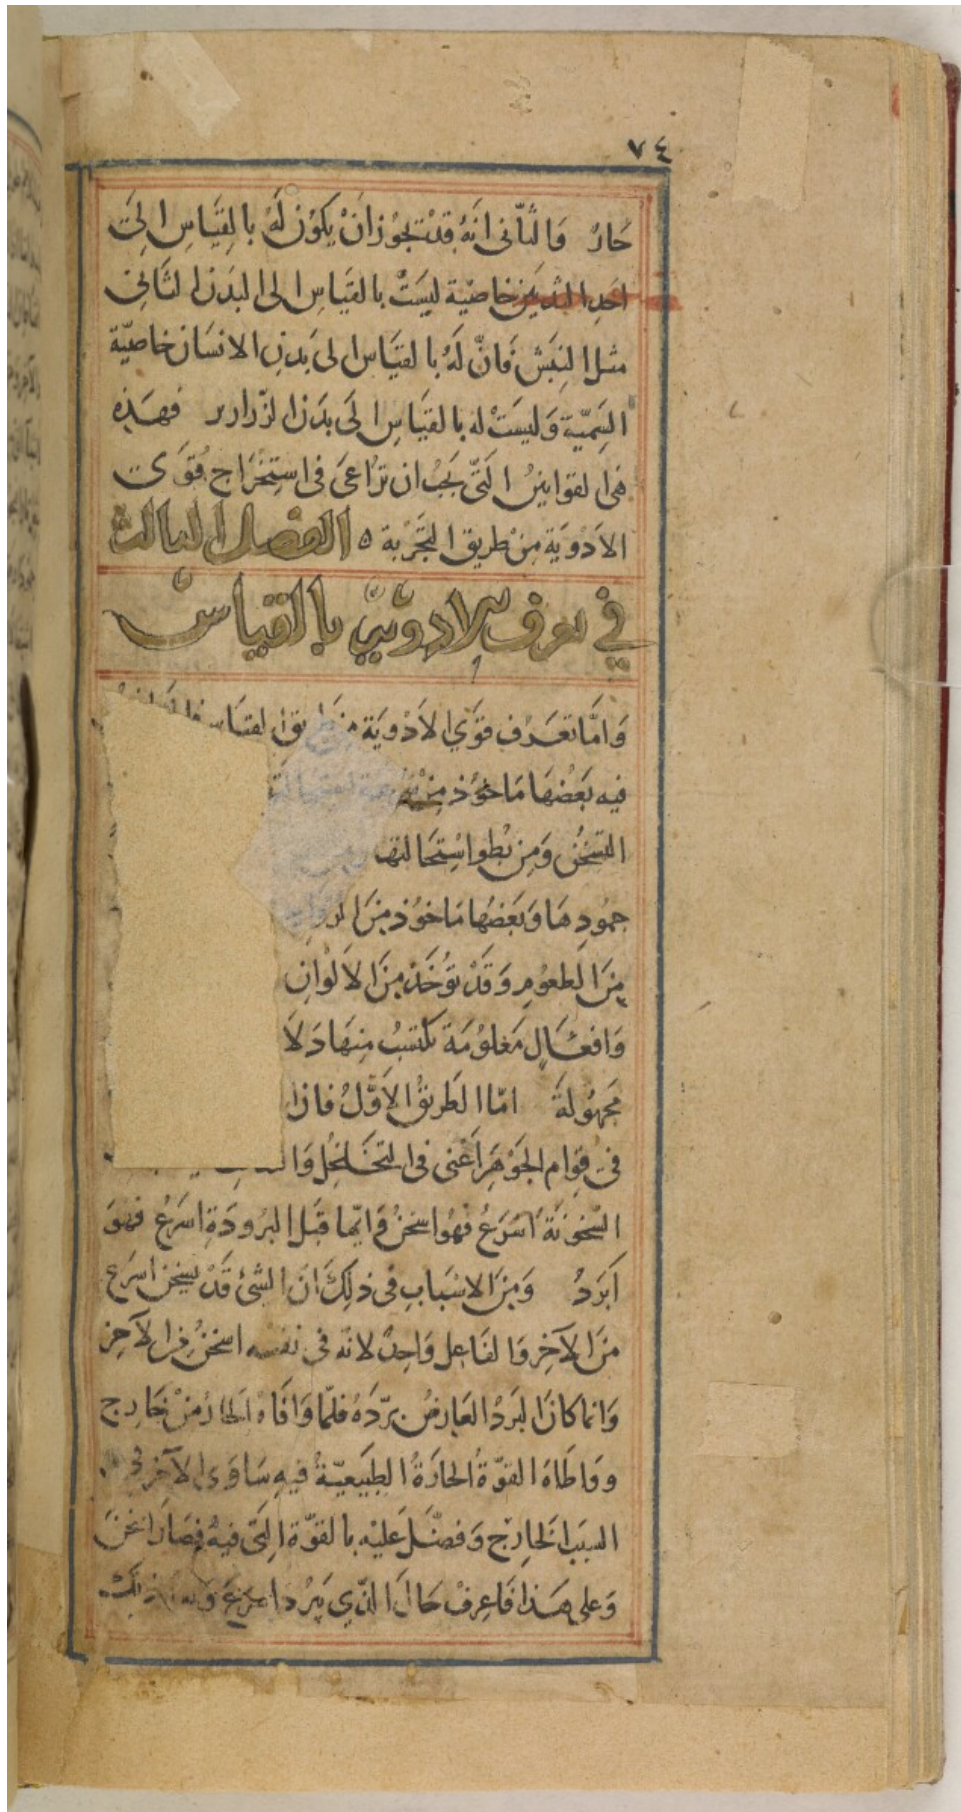 ٧٤
حَارٌ وَالثَّانى انَهُ قَدْ يَجُوْزانْ يكُوْن لَهُ بالِقيَاسِ الىَ
احَدِ البَدَنَيْنِ خاصّية ليسَتْ بالقيَاسِ الى البدَن الثانى
مثل البِيَش فَانّ لَهُ بالقيَاس الى بَدنِ الانسَان خاصّية
السَمِيّة وَليسَتْ له بالقيَاسِ الىَ بدَن الزّرازير فهَذِه
هىَ القوانينُ الَتّى يَجُب ان تُراعىَ فى استِخْراج قُوَى
الاَدْويَة مِنْ طريق التَجَربة ٥ الفصل الثالث
في تعرف الادوية بالقياس
وَامَّا تعَرّف قوَي الاَدْويَة مِن طَريق القيَاس
فيه بَعْضهَا مَاخوُذ مِنْ
التسَخّن وَمِن بُطو اسْتِحَالتها
جمُودِهَا وَبَعضهَا مَاخوُذ مِنَ الروَايح
مِنَ الطعوُم وَقَدْ توُخَذ مِنَ الاَلْوانِ
وَافعَالٍ مَعْلوُمَة تكتسَبُ مِنهَا دَلَا
مَجهُولَة امّا الطَريقُ الاَوّلُ فان
فى قِوام الجَوْهَرِ اَعْنى فى التخَلخُل وَا
السُخونَة اسَرَعُ فهُو اسخنُ وَايّها قَبل البرُودَةِ اسرَعُ فهوَ
اَبَردُ وَمِنَ الاسْبَابِ فى ذلِكَ انَ الشئ قَدْ يَسخن اسرَع
مَنَ الآخِر وَالفَاعِل وَاحِدٌ لانَه فى نفسه اسخنُ مِن الآخِر
وَانما كانَ البَردُ العَارِضُ برّدَهُ فلمّا وَافَاهُ الحَارُ مْن خَارِج
ووَاطَاهَ القوّةُ الحارَةُ الطبَيعيّةُ فيهِ سَاوَى الآخر فى
السَبَبِ الخَارِج وَفضّلَ عَليْه بالقوّة الَتى فيهِ فصَارَ اسخنَ
وَعلى هَذا فَاعِرفْ حَالَ الذّي يَبرُد اسرَعَ وَ